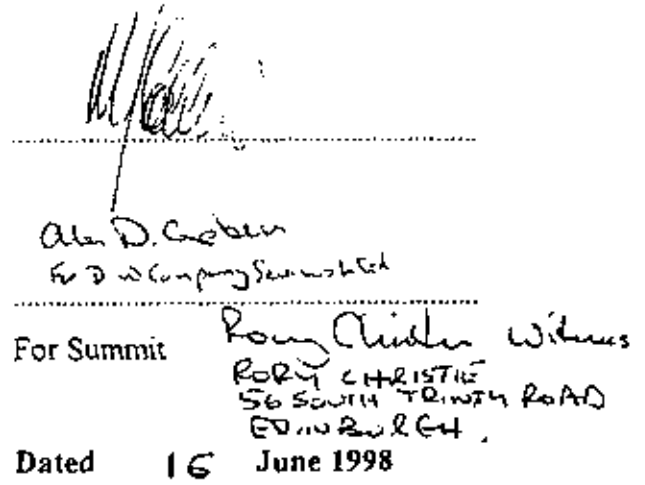 Alan D. Campbell
For D W Company Services Limited
For Summit Rory Christie Witness
RORY CHRISTIE
56 SOUTH TRINITY ROAD
EDINBURGH.
Dated 16 June 1998